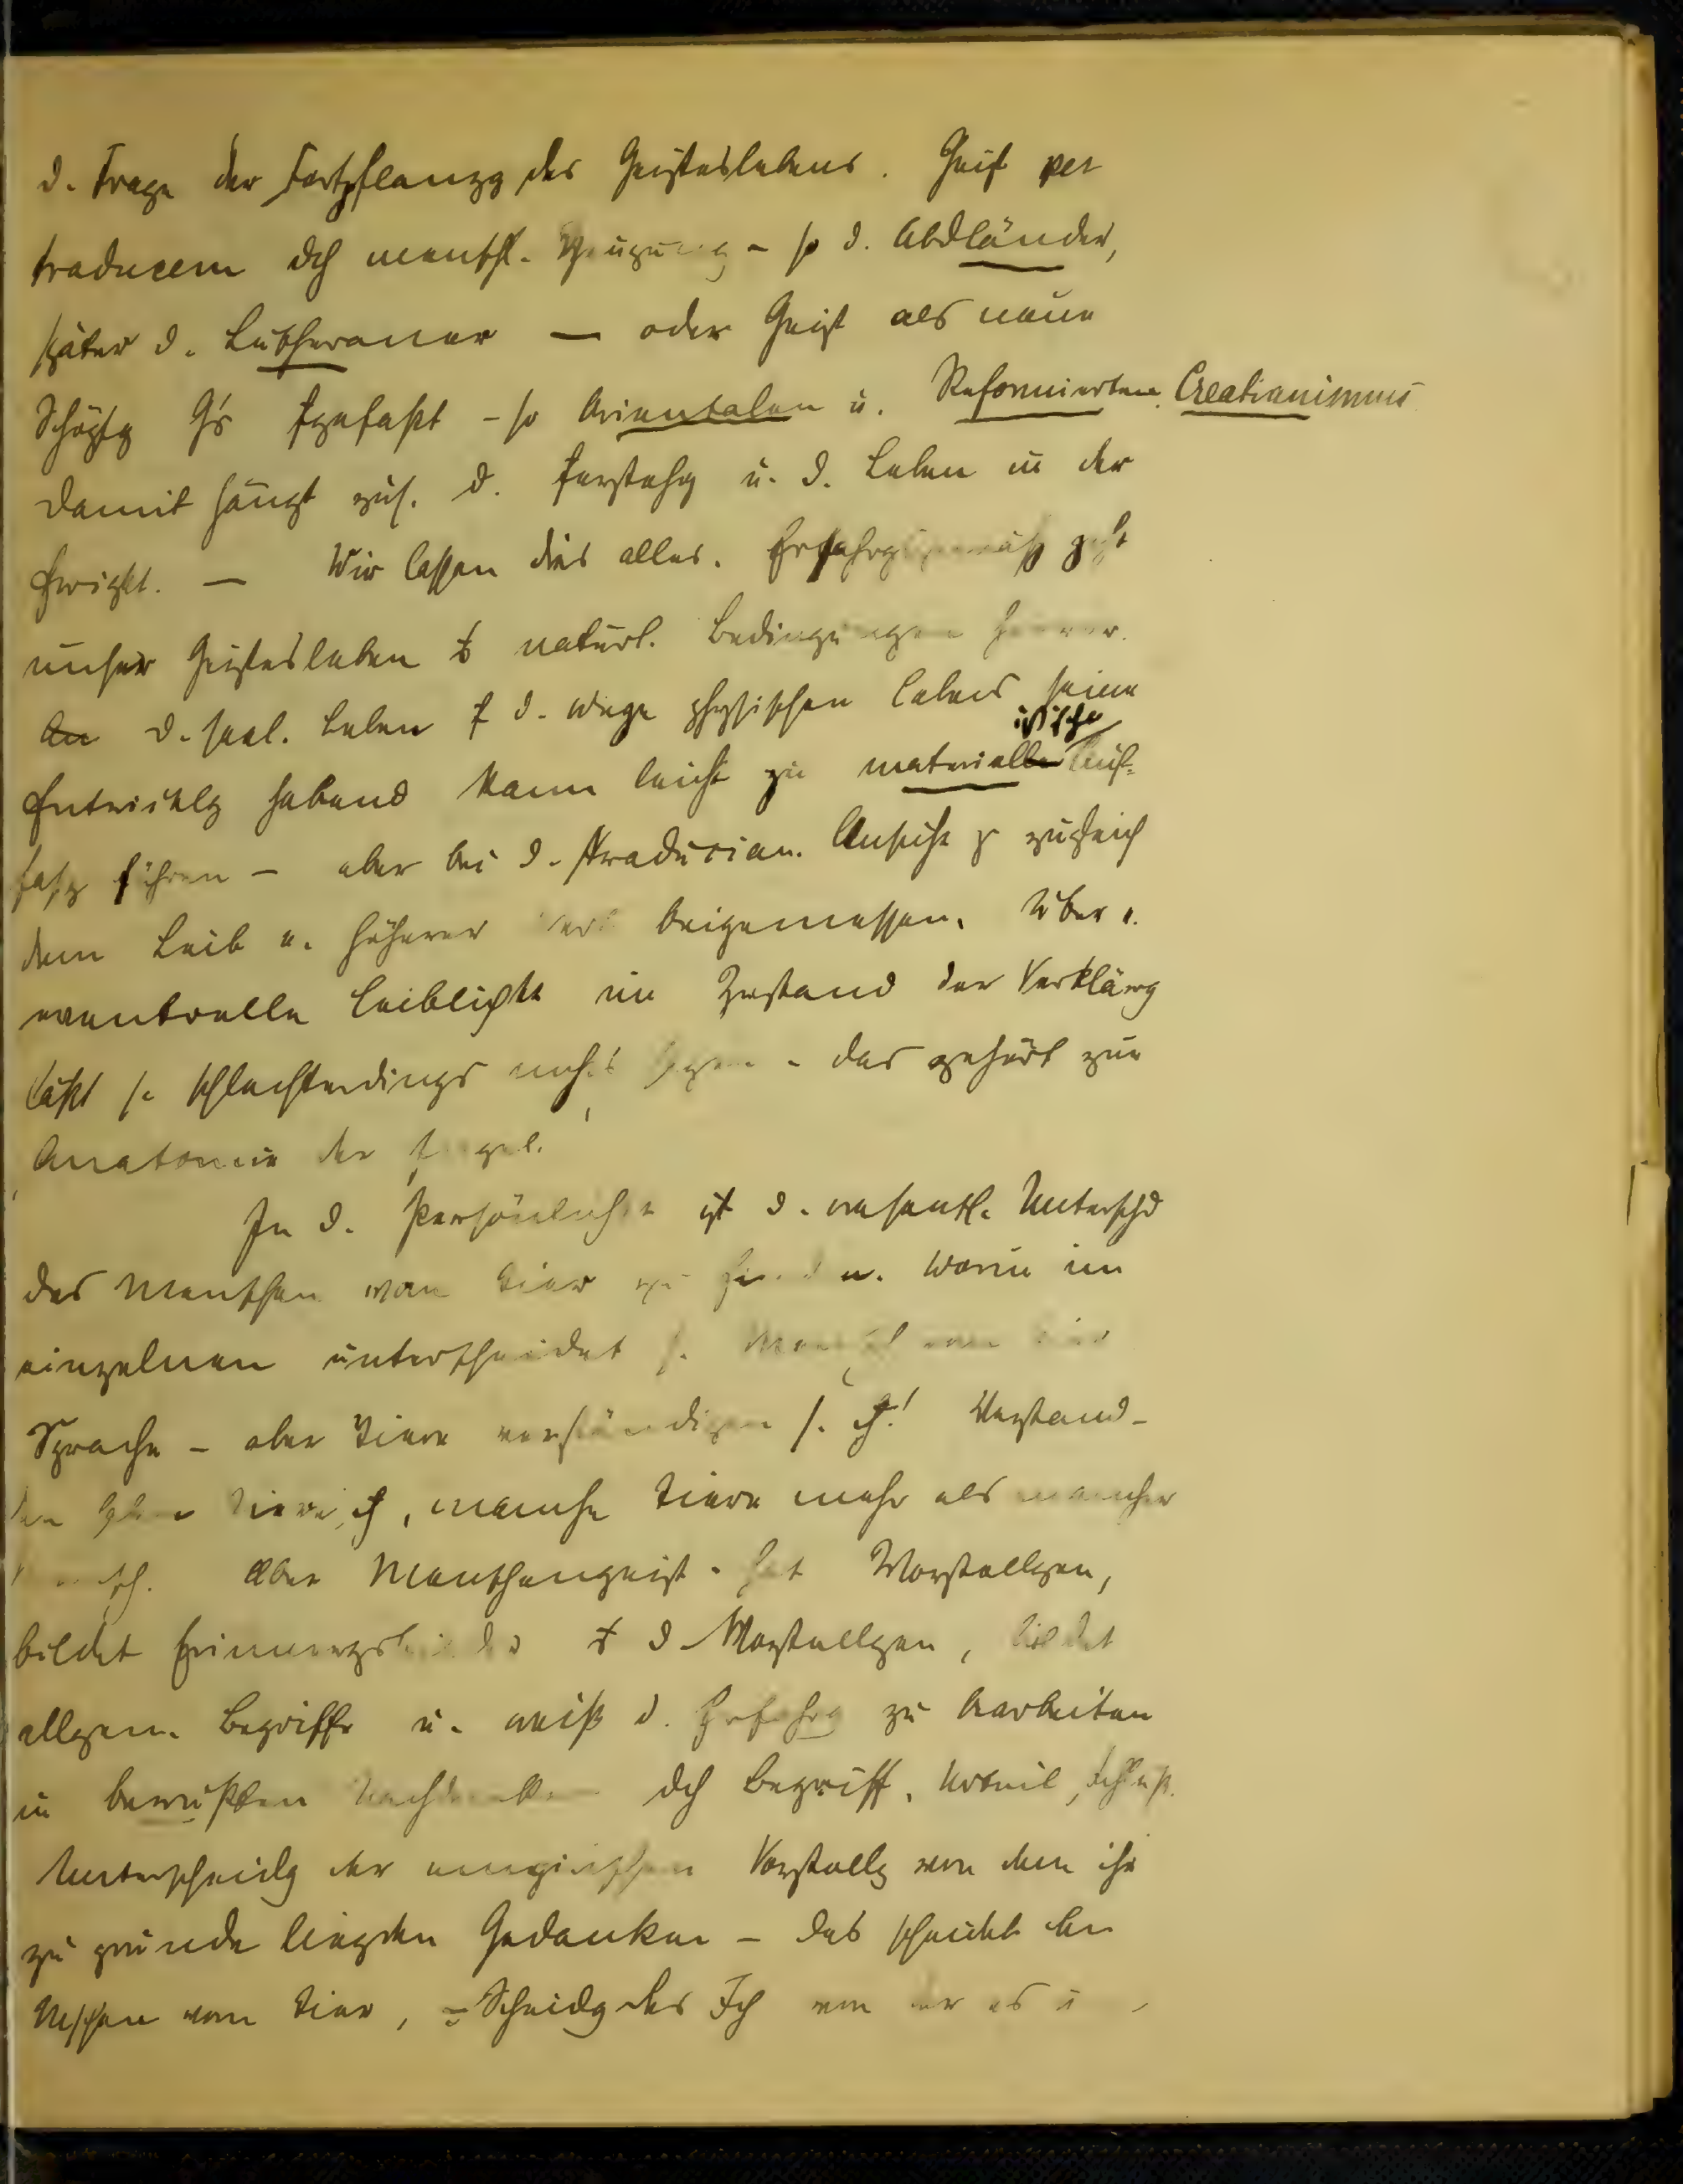 d. Frage der Fortpflanzg des Geisteslebens. Geist per
traducem dch menschl. Zeugung – so d. Abdländer,
später d. Lutheraner — oder Geist als neue
Schöpfg G's gefaßt – so Orientalen u. Reformierten. Creatianismus
Damit hängt zus. d. u. d. Leben in der
— Wir lassen dies alles. Erfahrgsgemäß geht
unser Geistesleben natürl. Bedingungen hervor.
d. seel. Leben d. Wege physischen Lebens seine
Entwicklg habend kann leicht zu materialistische Auf-
fassg führen – aber bei d. traducian. Ansicht zugleich
dem Leib e. höherer Wert beigemessen. Über e.
eventuelle Leiblichkt im Zustand der Verklärg
läßt s. schlechterdings nichts sagen – das gehört zur
Anatomie der Engel.
In d. Persönlichkt ist d. wesentl. Unterschd
des Menschen vom Tier zu finden. Worin im
einzelnen unterscheidet s. Mensch vom Tier
Sprache – aber Tiere verständigen s. Verstand –
Tiere, manche Tiere mehr als mancher
Mensch. Aber Menschengeist hat Vorstellgen,
bildet Erinnergsbilder d. Vorstellgen, bildet
allgem. Begriffe u. weiß d. Erfahrg zu bearbeiten
in bewußten Nachdenken dch Begriff, Urteil, Schluß.
Unterscheidg der empirischen Vorstellg von dem ihr
zu grunde liegden Gedanken – das scheidet den
Mschen vom Tier, = Scheidg des Ich von